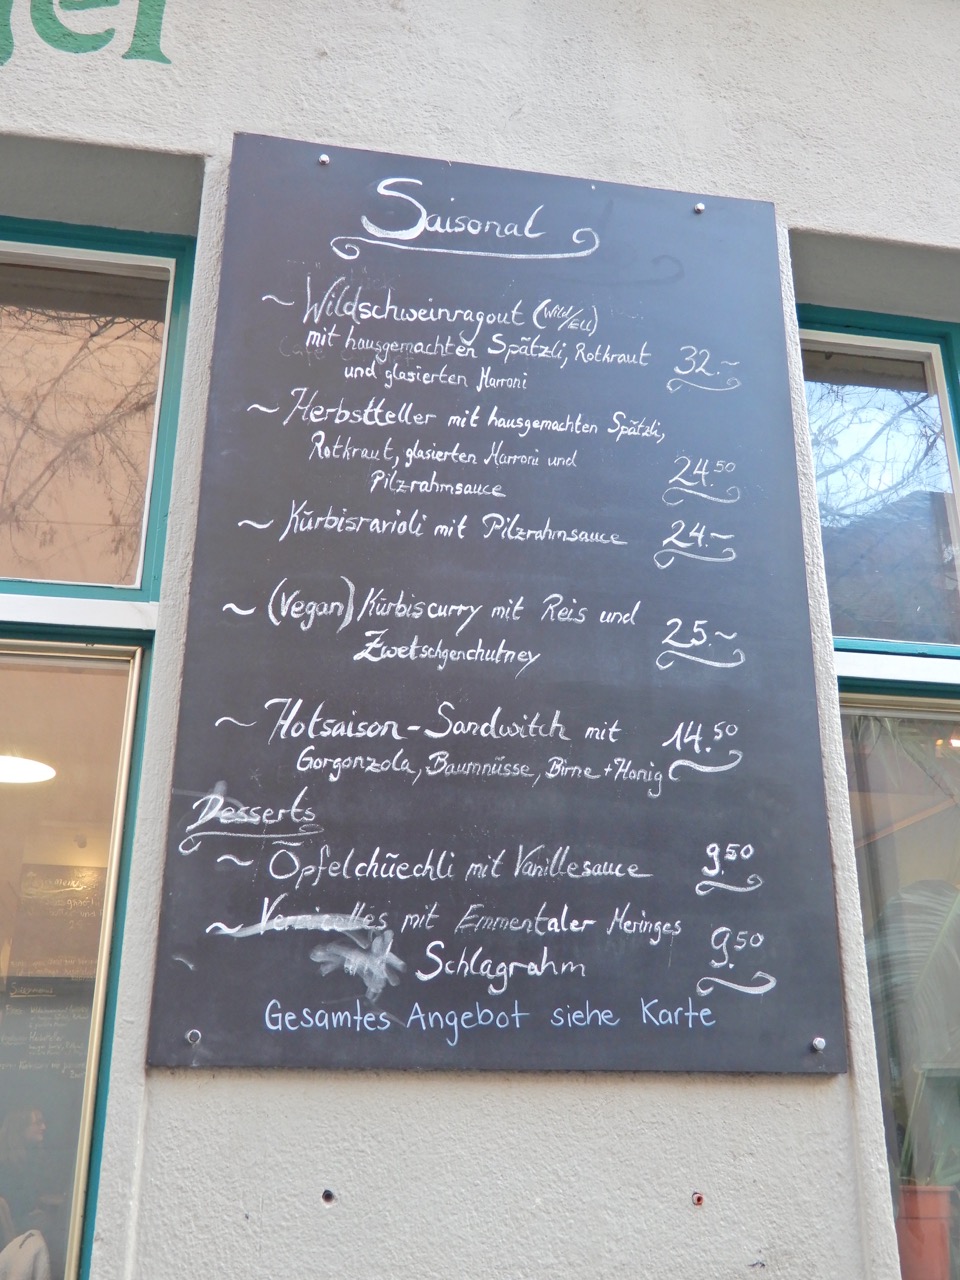 Saisonal
~ Wildschweinragout (Wild/EU)
mit hausgemachten Spätzli, Rotkraut 32.~
und glasierten Marroni
~ Herbstteller mit hausgemachten Spätzli,
Rotkraut, glasierten Marroni und
Pilzrahmsauce 24.50
~ Kürbisravioli mit Pilzrahmsauce 24.~
~ (Vegan) Kürbiscurry mit Reis und
Zwetschgenchutney 25.~
~ Hotsaison-Sandwitch mit 14.50
Gorgonzola, Baumnüsse, Birne + Honig
Desserts
~ Öpfelchüechli mit Vanillesauce 9.50
~ Vermicelles mit Emmentaler Meringes
Schlagrahm 9.50
Gesamtes Angebot siehe Karte